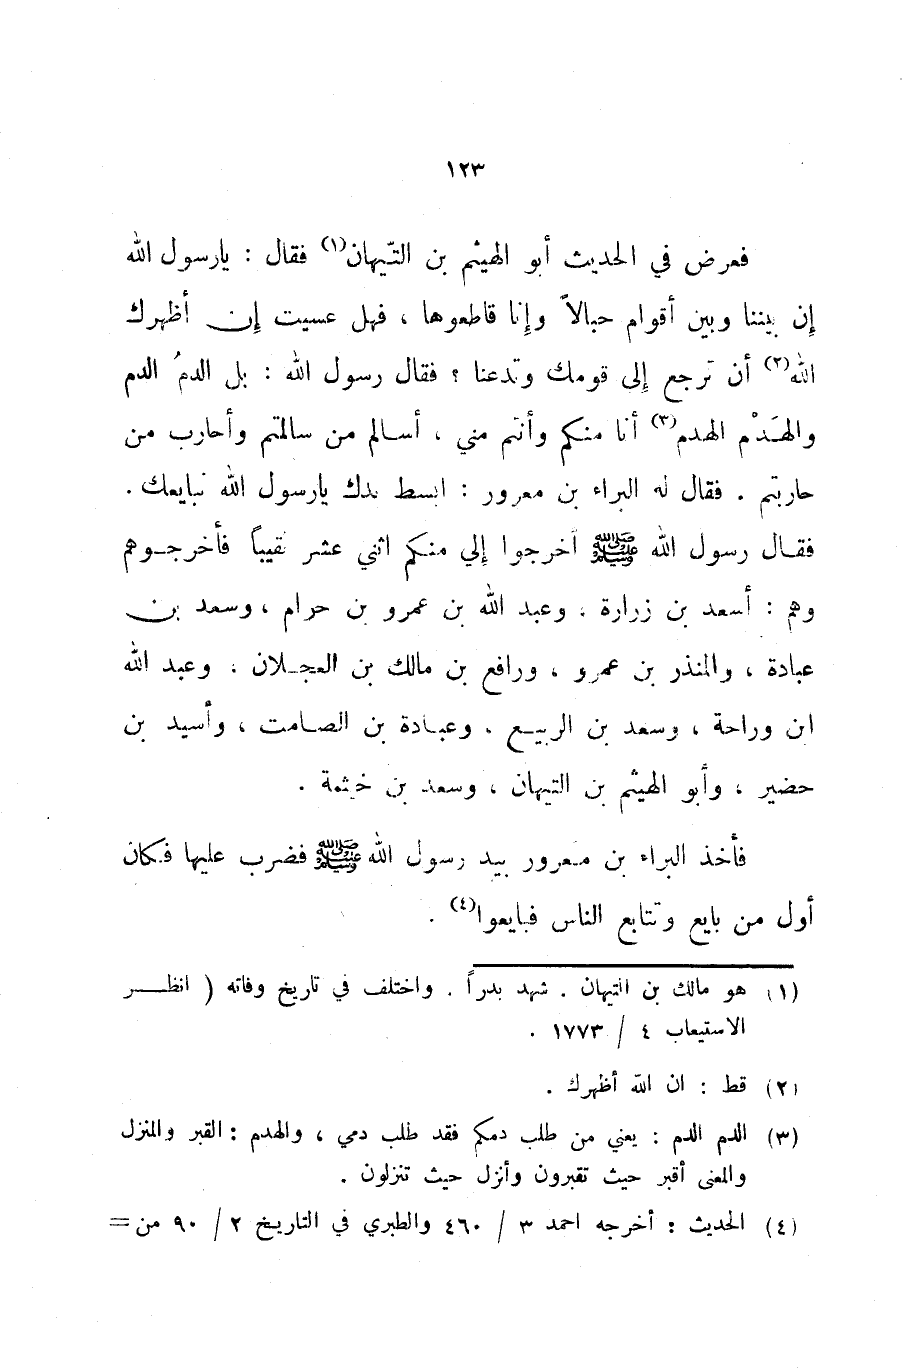 ١٢٣
فعرض في الحديث أبو الهيثم بن التّيهان(١) فقال : يارسول الله
إن بيننا وبين أقوام حبالاً وإنا قاطعوها ، فهل عسيت إن أظهرك
الله(٢) أن ترجع إلى قومك وتدعنا ؟ فقال رسول الله : بل الدمُ الدم
والهَدْم الهدم(٣) أنا منكم وأنتم مني ، أسالم من سالمتم وأحارب من
حاربتم . فقال له البراء بن معرور : ابسط يدك يارسول الله نبايعك .
فقال رسول الله ﷺ أخرجوا إلي منكم اثني عشر نقيباً فأخرجوهم
وهم : أسعد بن زرارة ، وعبد الله بن عمرو بن حرام ، وسعد بن
عبادة ، والمنذر بن عمرو ، ورافع بن مالك بن العجلان ، وعبد الله
ابن وراحة ، وسعد بن الربيع ، وعبادة بن الصامت ، وأسيد بن
حضير ، وأبو الهيثم بن التيهان ، وسعد بن خيثمة .
فأخذ البراء بن معرور بيد رسول الله ﷺ فضرب عليها فكان
أول من بايع وتتابع الناس فبايعوا(٤) .
(١) هو مالك بن التيهان . شهد بدراً . واختلف في تاريخ وفاته ( انظر
الاستيعاب ٤ / ١٧٧٣ .
(٢) قط : ان الله أظهرك .
(٣) الدم الدم : يعني من طلب دمكم فقد طلب دمي ، والهدم : القبر والمنزل
والمعنى أقبر حيث تقبرون وأنزل حيث تنزلون .
(٤) الحديث : أخرجه احمد ٣ / ٤٦٠ والطبري في التاريخ ٢ / ٩٠ من =